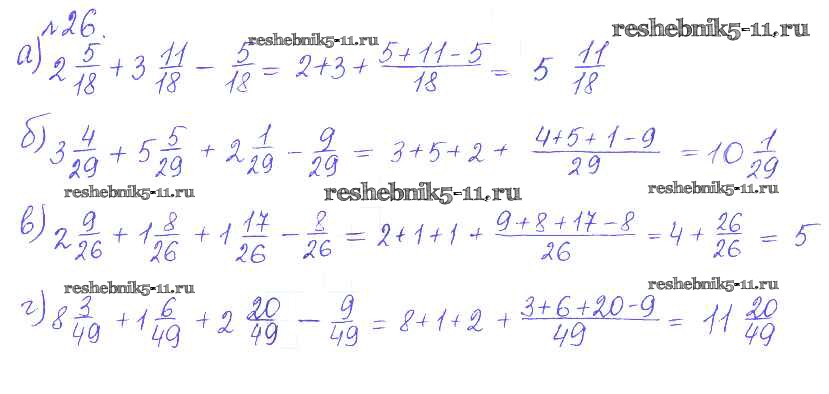 №26.
reshebnik5-11.ru
reshebnik5-11.ru
а) 2 5/18 + 3 11/18 - 5/18 = 2+3+ (5+11-5)/18 = 5 11/18
б) 3 4/29 + 5 5/29 + 2 1/29 - 9/29 = 3+5+2+ (4+5+1-9)/29 = 10 1/29
reshebnik5-11.ru
reshebnik5-11.ru
reshebnik5-11.ru
в) 2 9/26 + 1 8/26 + 1 17/26 - 8/26 = 2+1+1+ (9+8+17-8)/26 = 4 + 26/26 = 5
reshebnik5-11.ru
reshebnik5-11.ru
г) 8 3/49 + 1 6/49 + 2 20/49 - 9/49 = 8+1+2 + (3+6+20-9)/49 = 11 20/49